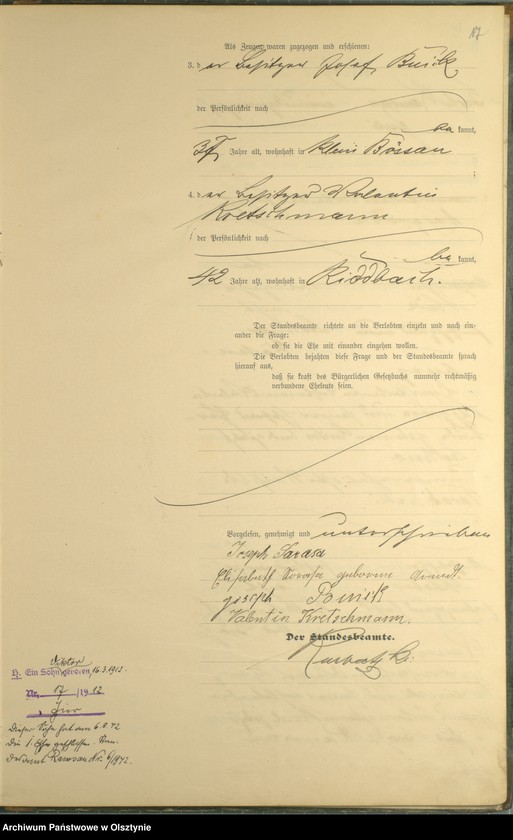 17
Als Zeugen waren zugezogen und erschienen:
3. der Besitzer Josef
der Persönlichkeit nach
be kannt,
37 Jahre alt, wohnhaft in Klein Bössau
;
4. der Besitzer Valentin
Kretschmann
der Persönlichkeit nach
be kannt,
42 Jahre alt, wohnhaft in Ridbach.
Der Standesbeamte richtete an die Verlobten einzeln und nach ein-
ander die Frage:
ob sie die Ehe mit einander eingehen wollen.
Die Verlobten bejahten diese Frage und der Standesbeamte sprach
hierauf aus,
daß sie kraft des Bürgerlichen Gesetzbuchs nunmehr rechtmäßig
verbundene Eheleute seien.
Vorgelesen, genehmigt und unterschrieben
Joseph
Elisabeth geborene
Valentin Kretschmann.
Der Standesbeamte.
H. Ein Sohn geboren 16.3.1912.
Nr. 17 /1912
hier
Dieser Sohn hat am
die 1. Ehe geschlossen. Stan-
desamt Nr. 6/1942.
Archiwum Państwowe w Olsztynie